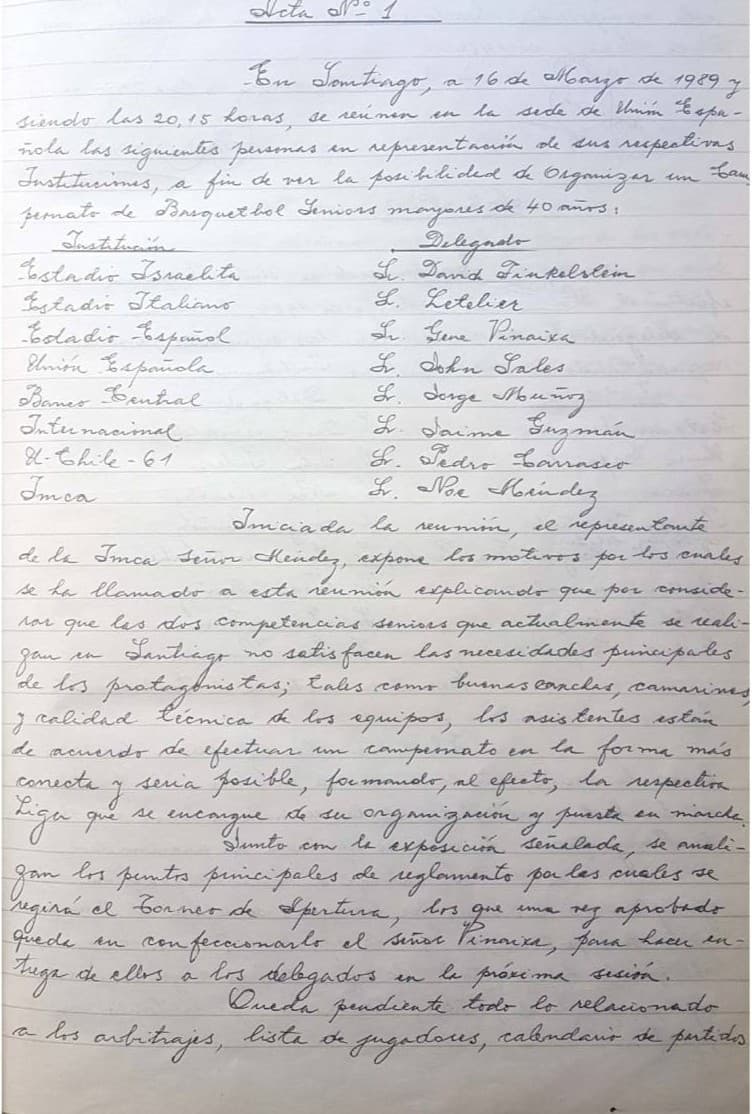 Acta Nº 1
En Santiago, a 16 de Marzo de 1989 y
siendo las 20,15 horas, se reúnen en la sede de Unión Espa-
ñola las siguientes personas en representación de sus respectivas
Instituciones, a fin de ver la posibilidad de Organizar un Cam
peonato de Basquetbol Seniors mayores de 40 años:
Institución Delegado
Estadio Israelita Sr. David Finkelstein
Estadio Italiano Sr. Letelier
Estadio Español Sr. Gene Pinaixa
Unión Española Sr. John Sales
Banco Central Sr. Jorge Muñoz
Internacional Sr. Jaime Guzmán
U-Chile-61 Sr. Pedro Carrasco
Imca Sr. Noe Méndez
Iniciada la reunión, el representante
de la Imca Señor Méndez, expone los motivos por los cuales
se ha llamado a esta reunión explicando que por conside-
rar que las dos competencias seniors que actualmente se reali-
zan en Santiago no satisfacen las necesidades principales
de los protagonistas; tales como buenas canchas, camarines,
y calidad técnica de los equipos, los asistentes están
de acuerdo de efectuar un campeonato en la forma más
correcta y seria posible, formando, al efecto, la respectiva
Liga que se encargue de su organización y puesta en marcha.
Junto con la exposición señalada, se anali-
zan los puntos principales de reglamento por las cuales se
regirá el Torneo de Apertura, los que una vez aprobado
queda en confeccionarlo el señor Pinaixa, para hacer en-
trega de ellos a los delegados en la próxima sesión.
Queda pendiente todo lo relacionado
a los arbitrajes, lista de jugadores, calendario de partidos